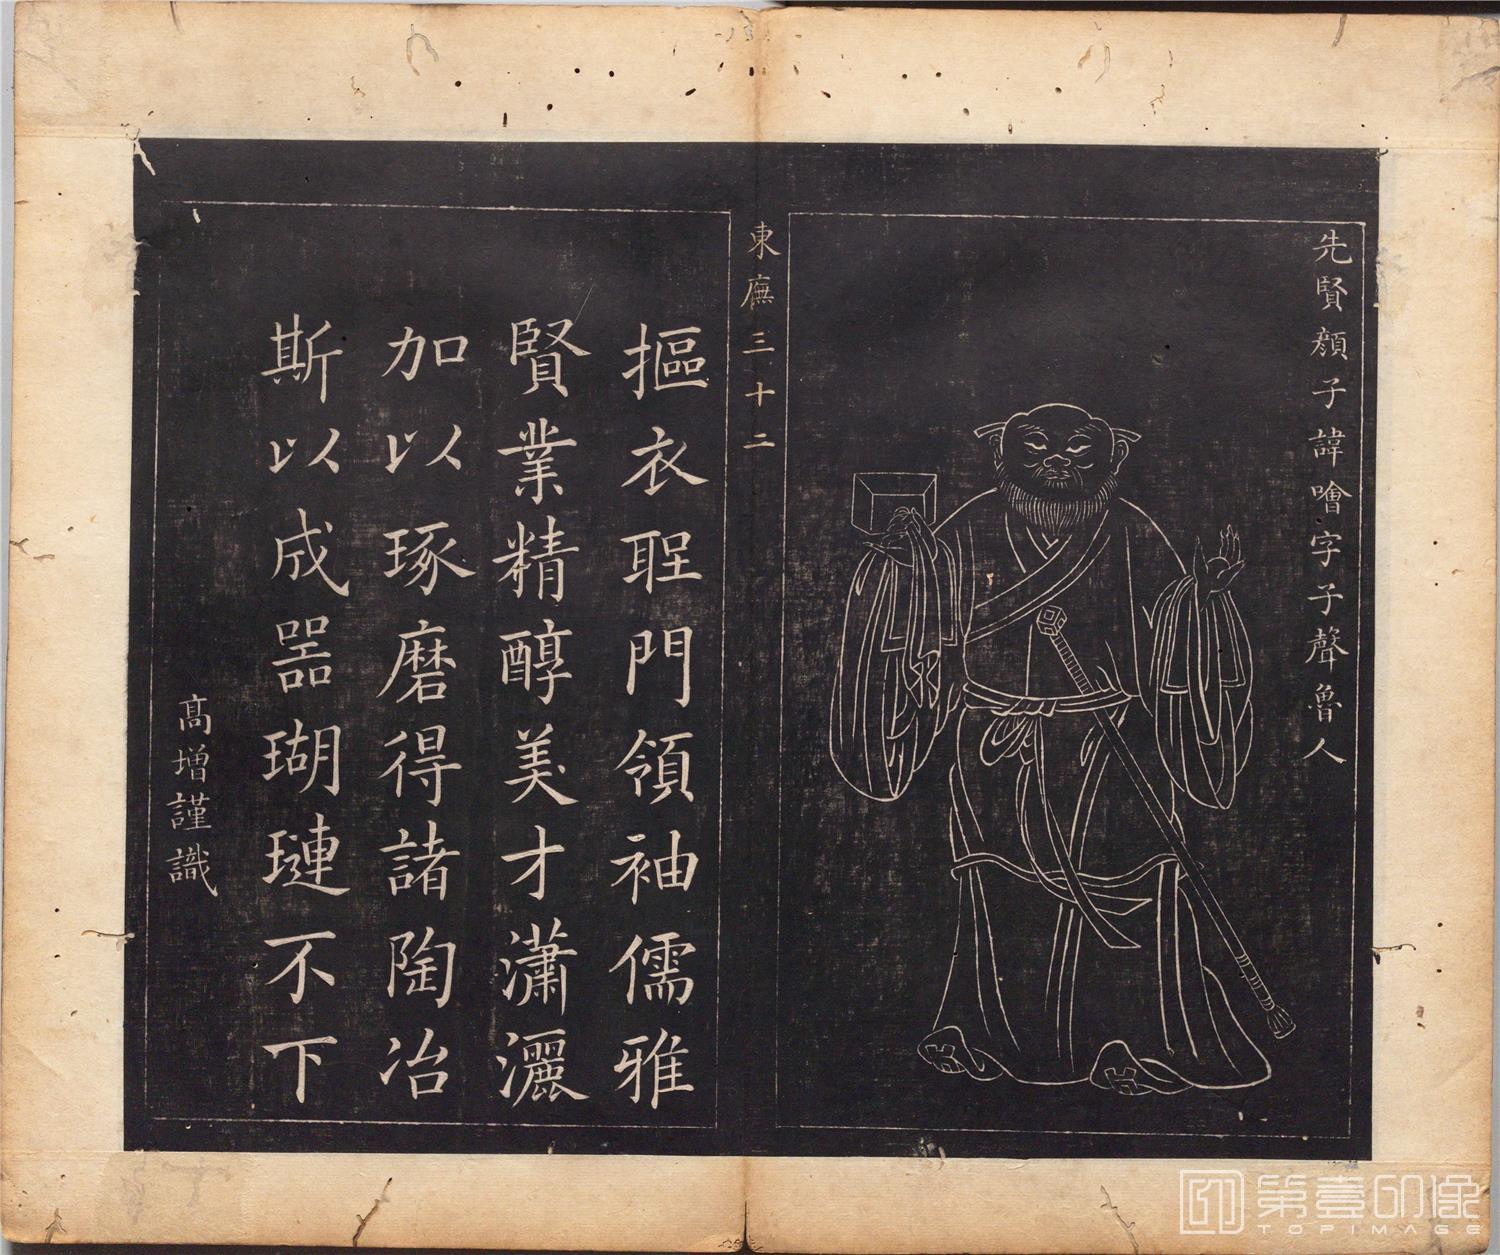 先賢顔子諱噲字子聲魯人
東廡三十二
摳衣聖門領袖儒雅
賢業精醇美才瀟灑
加以琢磨得諸陶冶
斯以成器瑚璉不下
高增謹識
第壹印像
TOPIMAGE